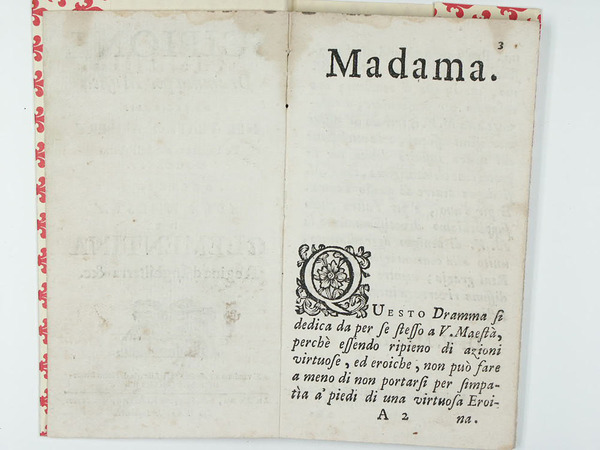 3
Madama.
QUESTO Dramma ſi
dedica da per ſe ſteſſo a V. Maeſtà,
perchè eſſendo ripieno di azioni
virtuoſe, ed eroiche, non può fare
a meno di non portarſi per ſimpa-
tìa a' piedi di una virtuoſa Eroi-
A 2 na.